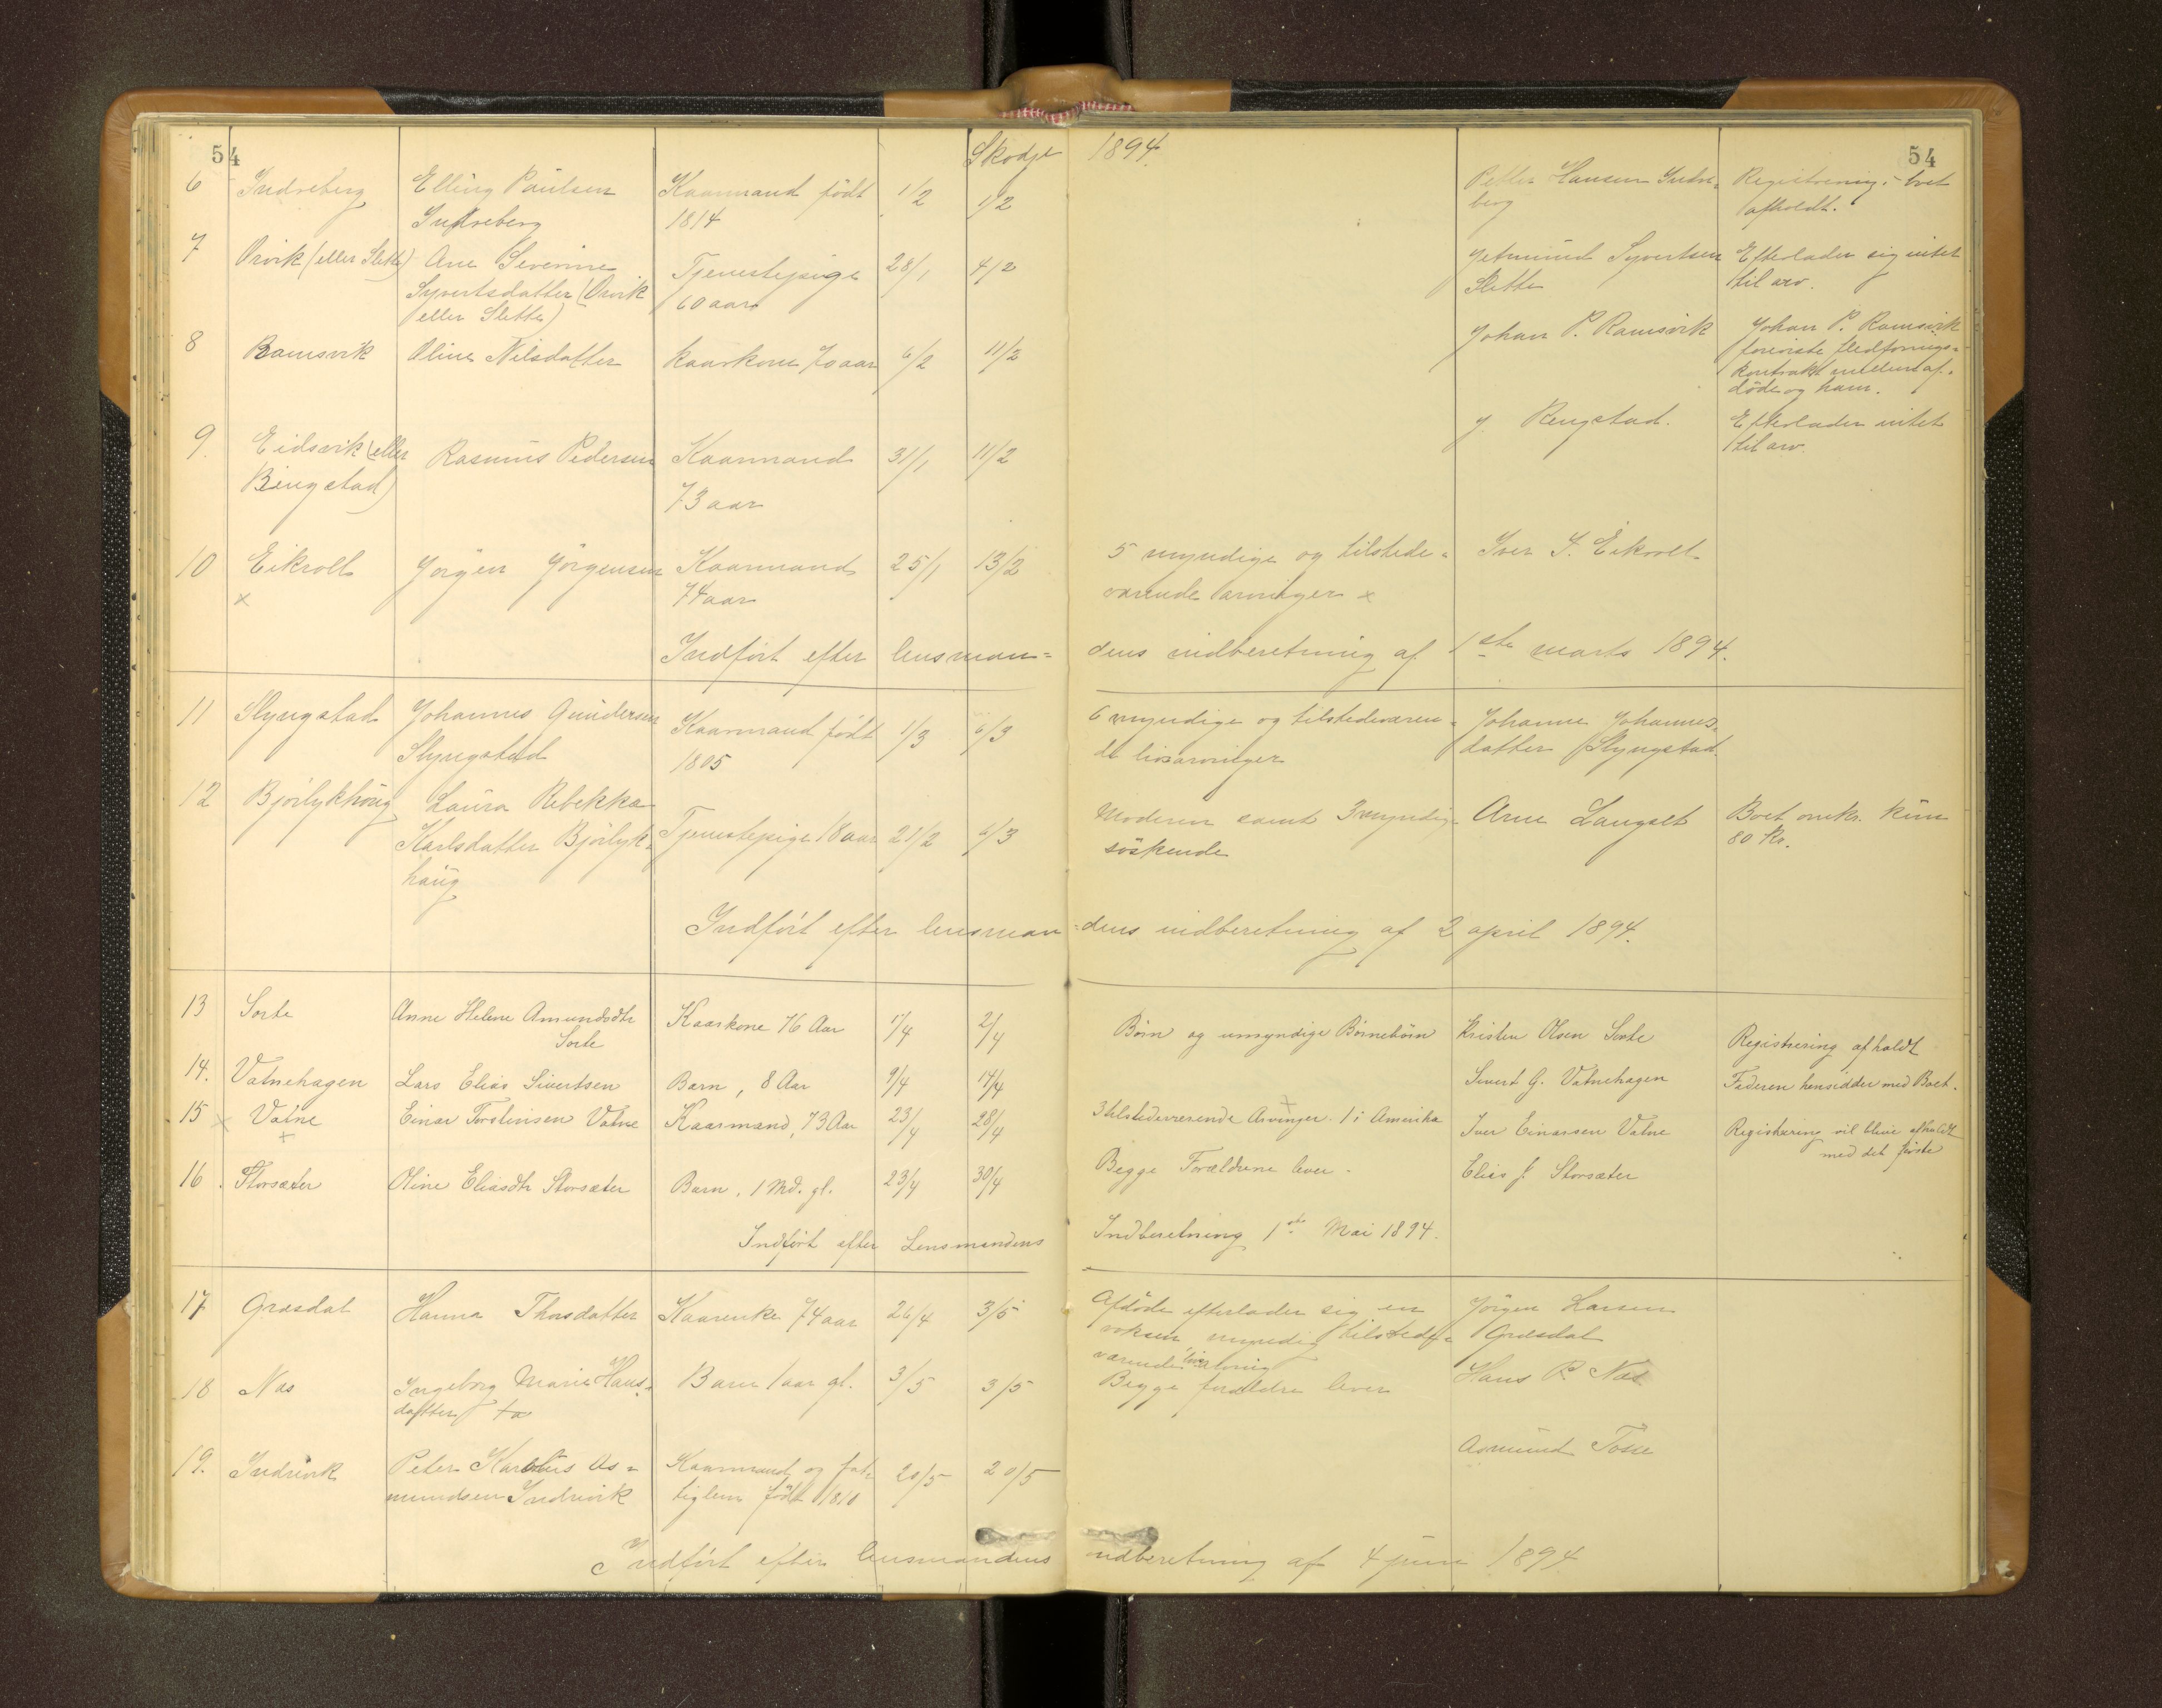 54
Skodje 1894.
54
6 Indreberg Elling Paulsen Kaarmand født 1/2 1/2 Petter Hansen Indre- Registrering i boet
Indreberg 1814 berg afholdt.
7 Orvik (eller Slette) Ane Severine Tjenestepige 28/1 4/2 Jetmund Syvertsen Efterlader sig intet
Syvertsdatter (Orvik 60 aar Slette til arv.
eller Slette)
8 Ramsvik Oline Nilsdatter kaarkone 70 aar 6/2 11/2 Johan P. Ramsvik Johan P. Ramsvik
foreviste fledførings-
kontrakt mellem af-
døde og ham.
9. Eidsvik (eller Rasmus Pedersen Kaarmand 31/1 11/2 J. Rengstad. Efterlader intet
Ringstad) 73 aar til arv.
10 Eikrolt Jørgen Jørgensen Kaarmand 25/1 13/2 5 myndige og tilstede- Iver J. Eikrolt
x 74 aar værende arvinger x
Indført efter lensman- dens indberetning af 1ste marts 1894.
11 Slyngstad Johannes Gundersen Kaarmand født 1/3 6/3 6 myndige og tilstedeværen- Johanne Johannes-
Slyngstad 1805 de livsarvinger datter Slyngstad.
12 Bjørlykhaug Laura Rebekka Tjenestepige 18 aar 21/2 6/3 Moderen samt 3 myndige Arne Langset Boet omkr. kun
Karlsdatter Bjørlyk- søskende 80 Kr.
haug
Indført efter lensman- dens indberetning af 2 april 1894.
13 Sorte Anne Helene Amundsdtr Kaarkone 76 Aar 1/4 2/4 Børn og umyndige Børnebørn Kristen Olsen Sorte Registrering afholdt
Sorte
14. Vatnehagen Lars Elias Sivertsen Barn, 8 Aar 9/4 14/4 Sivert G. Vatnehagen Faderen hensidder med Boet.
15 x Vatne Einar Torsteinsen Vatne Kaarmand, 73 Aar 23/4 28/4 3 tilstedeværende Arvinger. 1 i Amerika Iver Einarsen Vatne Registrering vil blive afholdt
+ + med det første
16. Storsæter Oline Eliasdtr Storsæter Barn, 1 Md. gl. 23/4 30/4 Begge Forældrene lever. Elias J. Storsæter
Indført efter Lensmandens Indberetning 1ste Mai 1894.
17 Græsdal Hanna Thorsdatter Kaarenke 74 aar 26/4 3/5 Afdøde efterlader sig en Jørgen Larsen
voksen myndig tilstede- Græsdal
værende livsarving
18 Næs Ingeborg Marie Hans- Barn 1 aar gl. 3/5 3/5 Begge forældre lever Hans P. Næs
datter
19. Indrevik Peter As- Kaarmand og fat- 20/5 20/5 Asmund Tosse
mundsen Indrevik tiglem født 1810
Indført efter lensmandens indberetning af 4 juni 1894.